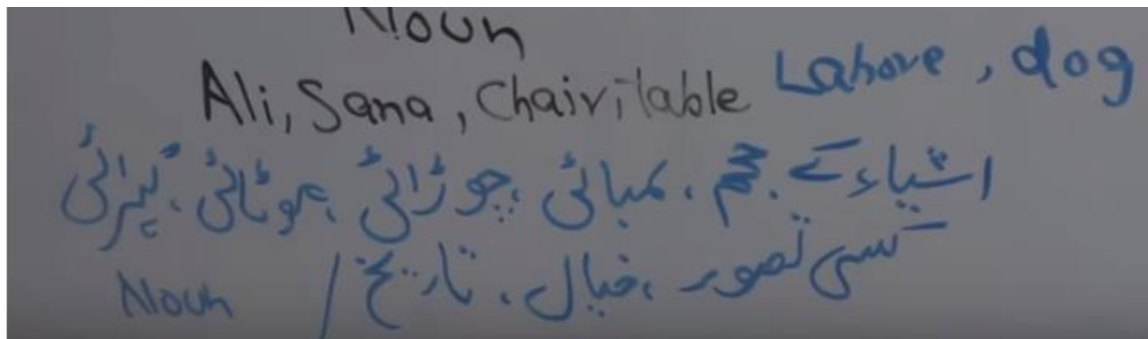 Noun
Ali, Sana, Chair, table Lahore, dog
اشیاء کے حجم، لمبائی، چوڑائی، موٹائی، گہرائی
کسی تصور، خیال، تاریخ /
Noun